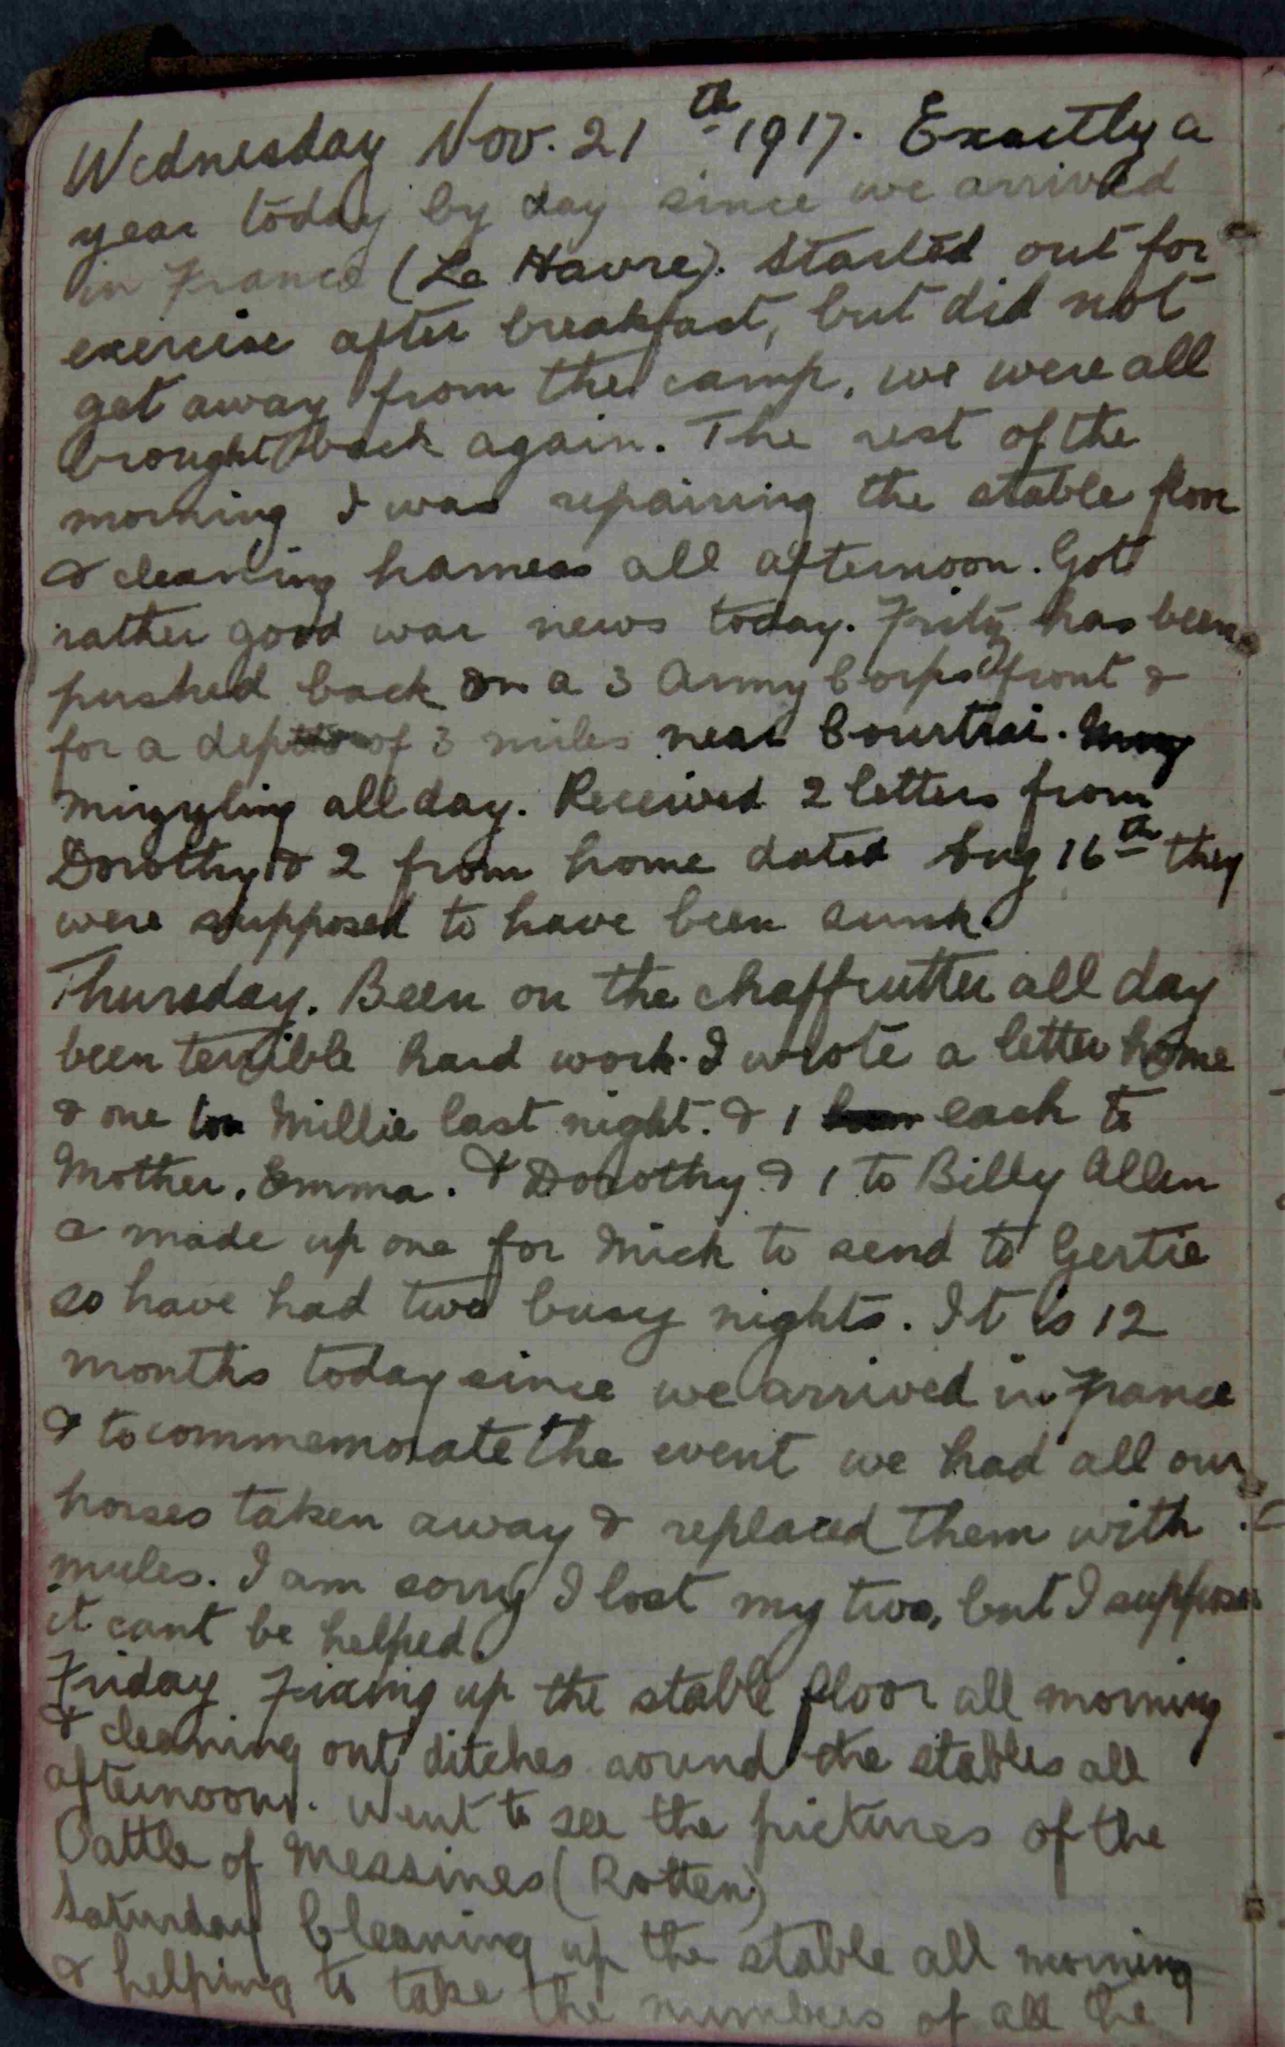 Wednesday Nov. 21th 1917. Exactly a
year today by day since we arrived
in France (Le Havre). Started out for
exercise after breakfast, but did not
get away from the camp, we were all
brought back again. The rest of the
morning I was repairing the stable floor
& cleaning harness all afternoon. Got
rather good war news today. Fritz has been
pushed back on a 3 Army Corps front &
for a depth of 3 miles near Courtrai.
Mizzling all day. Received 2 letters from
Dorothy & 2 from home dated Aug 16th they
were supposed to have been sunk.
Thursday. Been on the chaffcutter all day
been terrible hard work. I wrote a letter home
& one to Millie last night. & 1 each to
Mother, Emma. & Dorothy & 1 to Billy Allen
& made up one for Mick to send to Gertie
so have had two busy nights. It is 12
months today since we arrived in France
& to commemorate the event we had all our
horses taken away & replaced them with
mules. I am sorry I lost my two, but I suppose
it cant be helped.
Friday Fixing up the stable floor all morning
& cleaning out ditches around the stables all
afternoon. Went to see the pictures of the
Battle of Messines (Rotten)
Saturday Cleaning up the stable all morning
& helping to take the numbers of all the